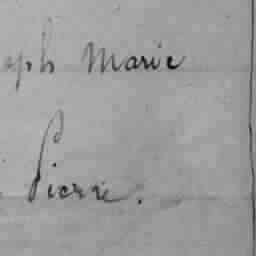 aph Marie
Pierre.